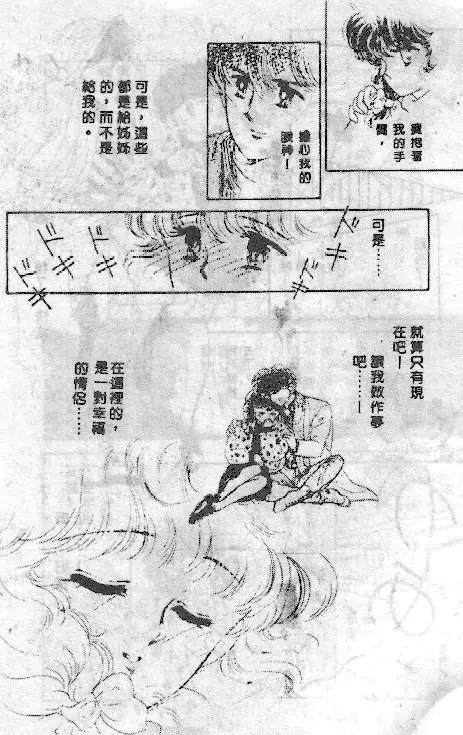 擁抱著
我的手
臂，
擔心我的
眼神—
可是，這些
都是給姊姊
的，而不是
給我的。
可是……
ズキ
ズキ
ズキ
ズキ
ズキ
就算只有現
在吧—
讓我做作夢
吧………
在這裡的，
是一對幸福
的情侶……